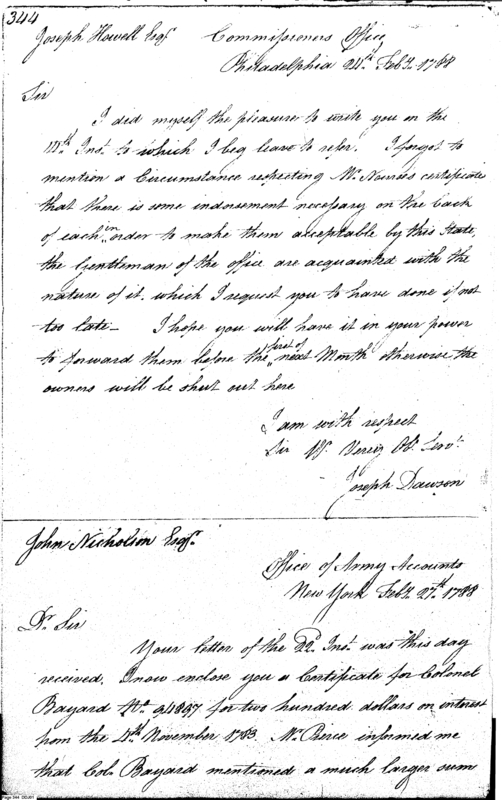 344
Joseph Howell Esqr. Commissioners Office
Philadelphia 24th. Feby. 1788
Sir
I did myself the pleasure to write you on the
14th. Inst. to which I beg leave to refer. I forgot to
mention a Circumstance respecting Mr. certificate
that there is some indorsement necessary on the back
of each in order to make them acceptable by this State,
the Gentleman of the office are acquainted with the
nature of it. which I request you to have done if not
too late — I hope you will have it in your power
to forward them before the first of next Month otherwise the
owners will be shut out here
I am with respect
Sir Yr. Very Ob. Servt.
Joseph Dawson
John Nicholson Esqr.
Office of Army Accounts
New York Feby. 27th. 1788
Dr. Sir
Your letter of the 22d. Inst. was this day
received. I now enclose you a Certificate for Colonel
Bayard No. 94897 for two hundred dollars on interest
from the 4th November 1783. Mr. Pierce informed me
that Col. Bayard mentioned a much larger sum